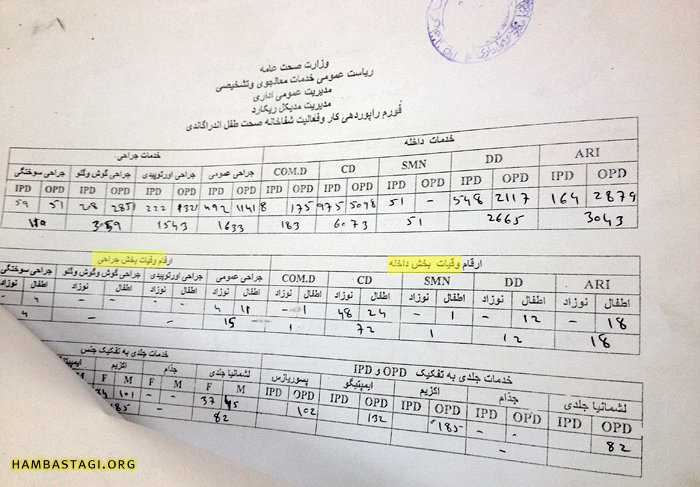 وزارت صحت عامه
ریاست عمومی خدمات معالجوی وتشخیصی
مدیریت عمومی اداری
مدیریت مدیکل ریکارد
فورم راپوردهی کار وفعالیت شفاخانه صحت طفل اندراگاندی
خدمات داخله خدمات جراحی
ARI DD SMN CD COM.D جراحی عمومی جراحی اورتوپیدی جراحی گوش وگلو جراحی سوختگی
OPD IPD OPD IPD OPD IPD OPD IPD OPD IPD OPD IPD OPD IPD OPD IPD OPD IPD
2879 164 2117 548 - 51 5098 975 175 8 1141 492 1321 222 2851 208 51 59
3043 2665 51 6073 183 1633 1543 3059 110
ارقام وقیات بخش داخله ارقام وقیات بخش جراحی
ARI DD SMN CD COM.D جراحی عمومی جراحی اورتوپیدی جراحی گوش وگوش وگلو جراحی سوختگی
اطفال نوزاد اطفال نوزاد اطفال نوزاد اطفال نوزاد اطفال نوزاد اطفال نوزاد اطفال نوزاد اطفال نوزاد اطفال نوزاد
18 - 12 - - 1 24 48 1 - 11 4
18 12 1 72 1 15
خدمات جلدی به تفکیک OPD و IPD خدمات جلدی به تفکیک جنس
لشمانیا جلدی جذام اکزیم ایمپتیگو پسوریازس لشمانیا جلدی جذام اکزیم
OPD IPD OPD IPD OPD IPD OPD IPD OPD IPD M F M F M F
82 - - 185 132 102 45 37 - - 101 84
- 82 - 185
HAMBASTAGI.ORG